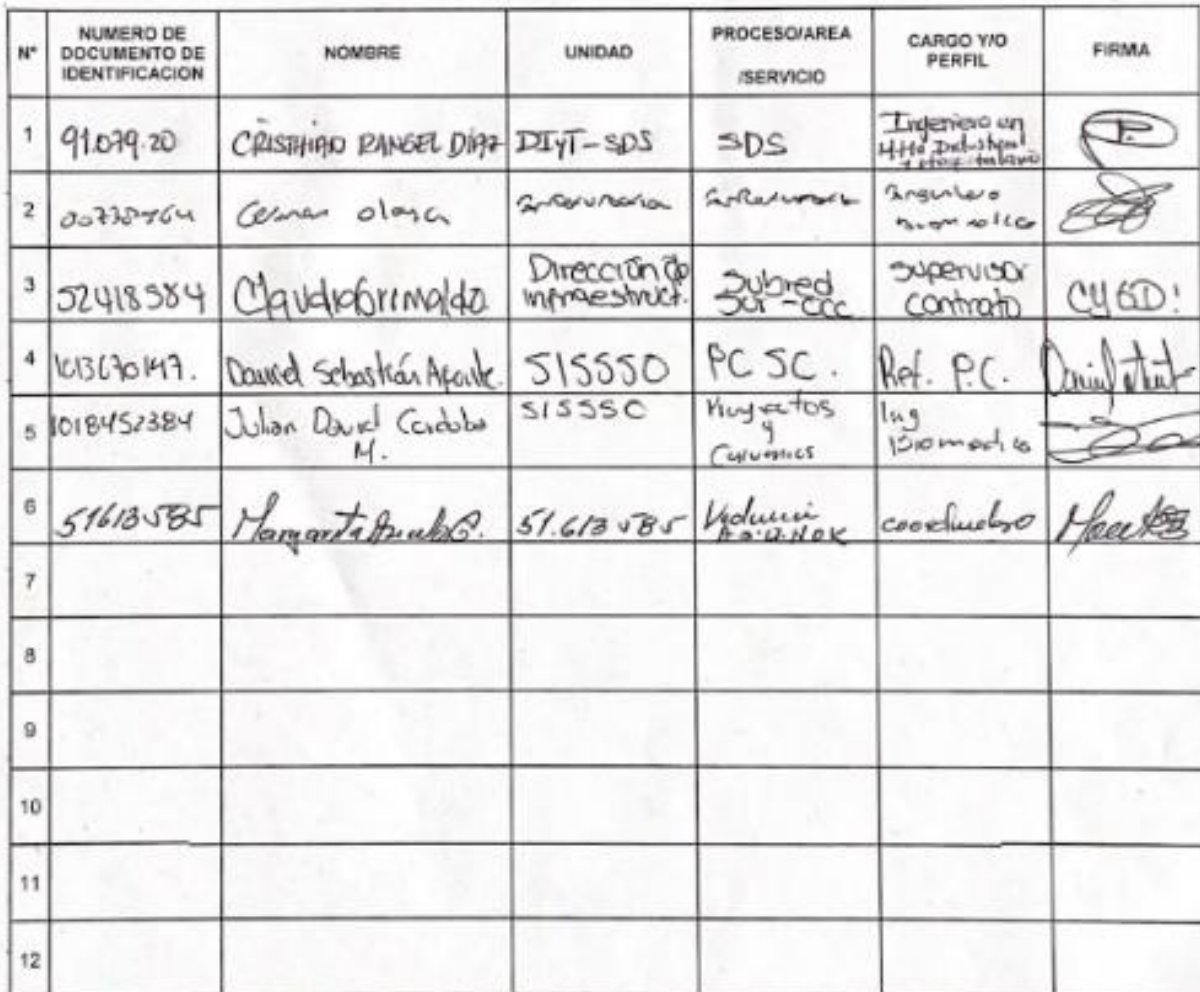 N° NUMERO DE DOCUMENTO DE IDENTIFICACION NOMBRE UNIDAD PROCESO/AREA /SERVICIO CARGO Y/O PERFIL FIRMA
1 91.079.20 CRISTHIAN RANGEL DÍAZ DIyT-SDS SDS Ingeniero en
2 Ingeniero
3 52418584 Claudia Grimaldo Dirección de infraestruct. Subred Sur-CCC supervisor contrato CYGD!
4 Daniel Sebastián Aponte. SISSSO PC SC. Ref. P.C.
5 1018452384 Julian David Cordoba M. SISSSO Proyectos y Ing Biomedico
6 51613585 Margarita 51.613585 coordinadora
7
8
9
10
11
12